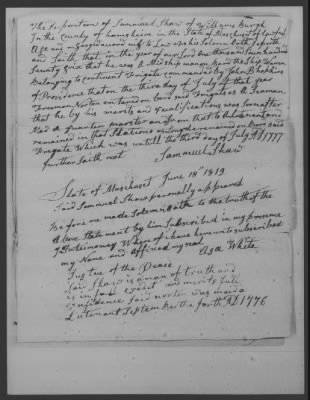 The Deposition of Sammuel Shaw of Wiliamsburgh
In the County of hampshire in the State of Massachusett of Lawful
Age and in Law Makes Solomn Oath Deposeth
and Saith that in the year of our lord One thousand Seven hundred
Seventy Six that he was a Midship mangon board the Ship Warren
belonging to continent Frigate commanded by John B hopkins
of Providence that on the third day of July of that year
Freeman Norton entared on bord said Frigate as a Seaman
that he by his merits and qualifications was soon after
Mad a Quarter master and from that to Lieutenant and
remained in that Stations as long he remained on bord said
Fregate Which was untill the third day of July AD 1777
further saith not Sammuel Shaw
State of Massachuset June 18th 1819
Said Samuel Shaw parsonally appeared
Before me made Solemn Oath to the truth of the
above Statement by him Subscribed in my presence
I Testimony Whereof i have hereunto subscribed
my Name and affixed my seal
Asa White
Justice of the Peace
Said Shaw is a man of truth and
is in fare credit and merits full
confidence Said norton was mad a
Lutenant Septembar the forth AD 1776